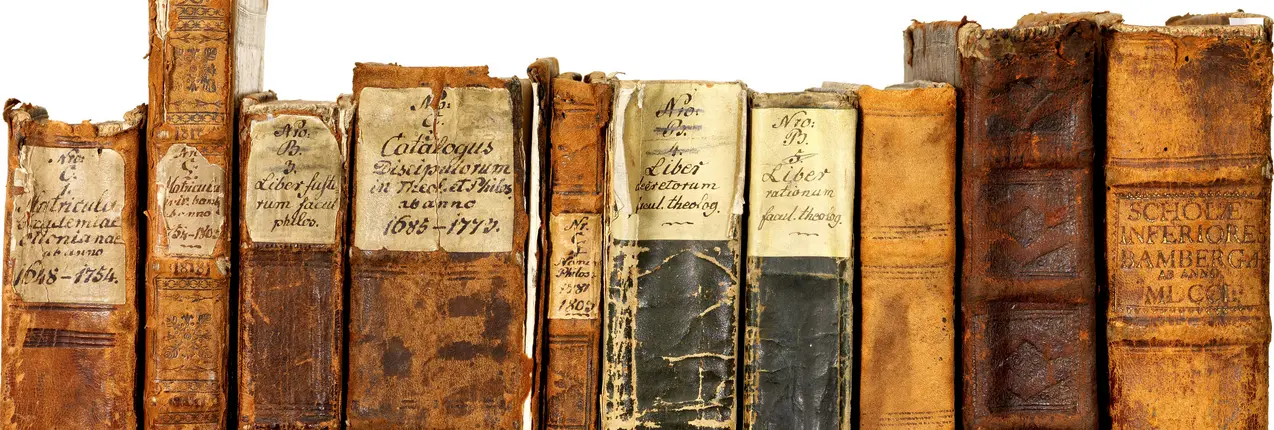 Nro:
C.
1.
Matricula
Academiae
Ottonianae
ab anno
1648-1754.
C.
Matricula
ab anno
1754-1803
Nro:
B.
3.
Liber
rum facul
philos.
Nro:
C.
Catalogus
Discipulorum
in Theol. et Philos.
ab anno
1685-1773.
Nr.
C.
Philos.
1803
Nro:
B.
4.
Liber
decretorum
facul. theolog.
Nro:
B.
5.
Liber
rationum
facul. theolog.
SCHOLÆ
INFERIORES
BAMBERGÆ
AB ANNO